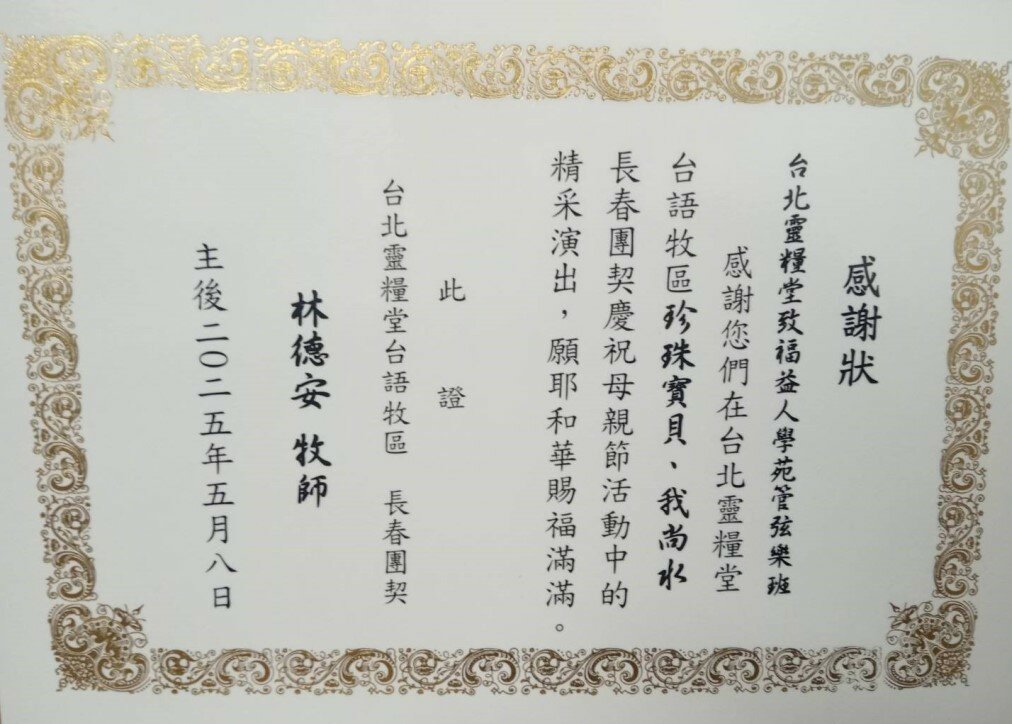 感謝狀
台北靈糧堂致福益人學苑管弦樂班
感謝您們在台北靈糧堂
台語牧區珍珠寶貝、我尚水
長春團契慶祝母親節活動中的
精采演出，願耶和華賜福滿滿。
此證
台北靈糧堂台語牧區 長春團契
林德安 牧師
主後二〇二五年五月八日